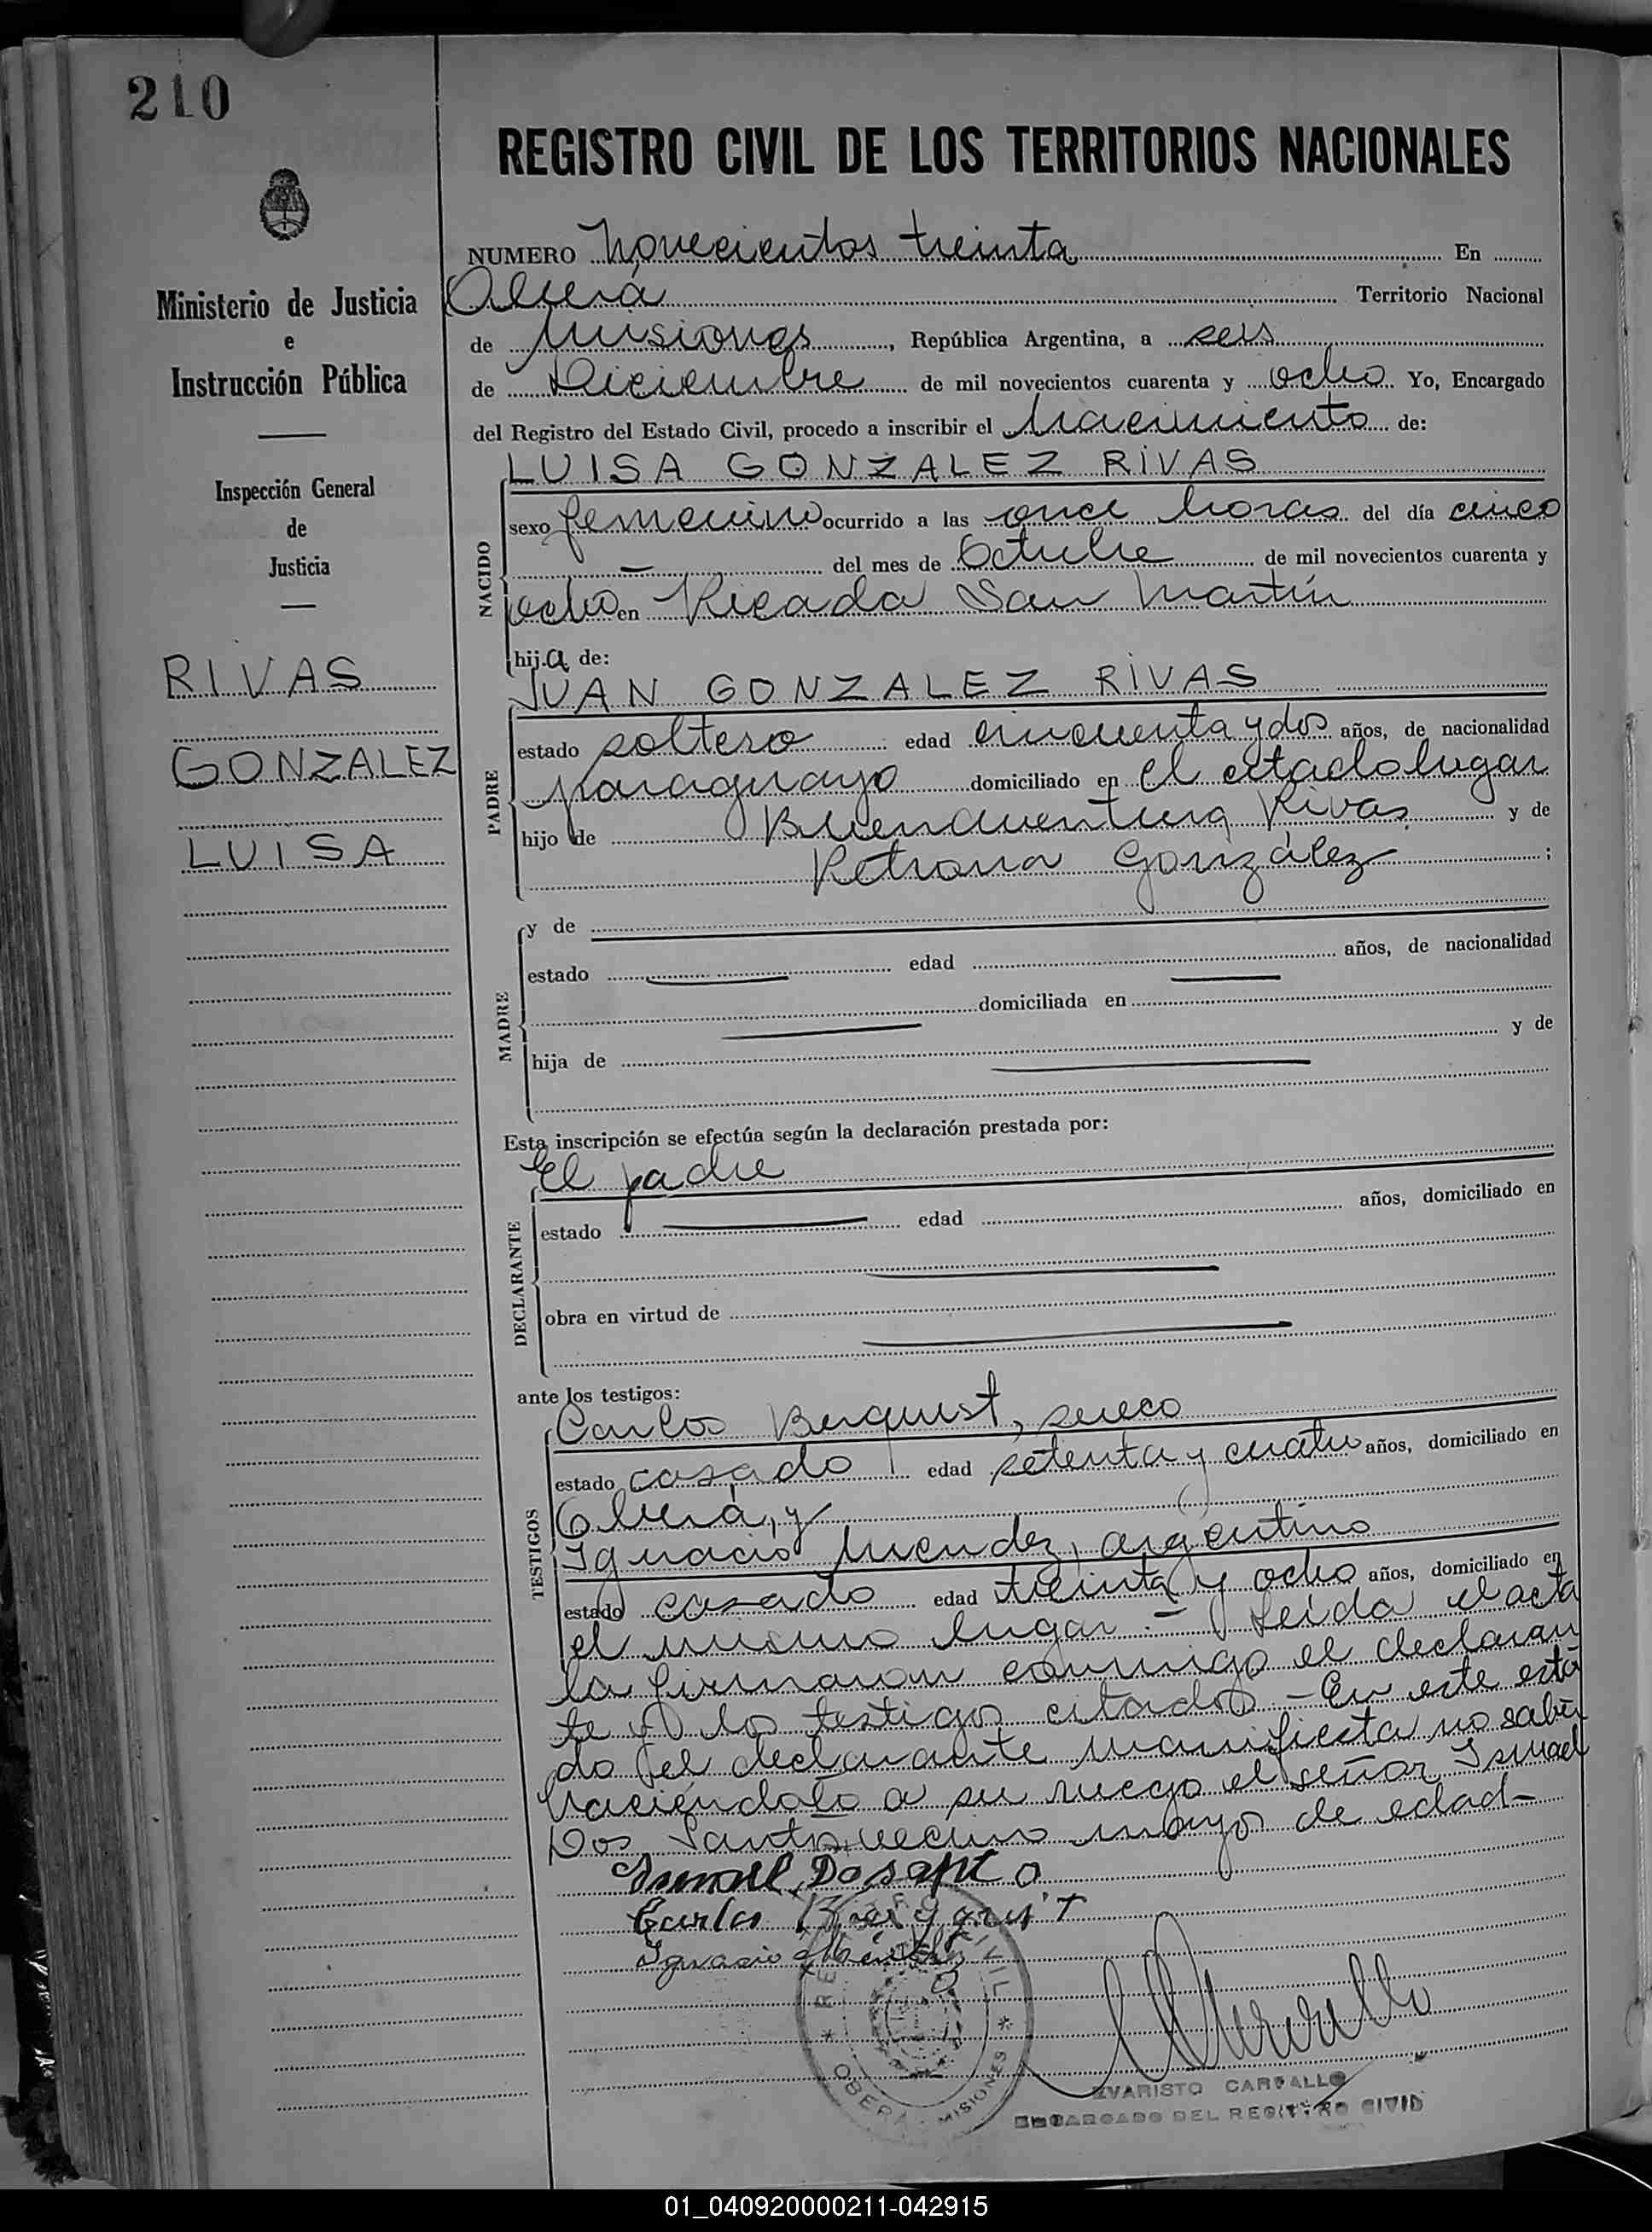 210
REGISTRO CIVIL DE LOS TERRITORIOS NACIONALES
Ministerio de Justicia
e
Instrucción Pública
Inspección General
de
Justicia
RIVAS
GONZALEZ
LUISA
NUMERO Novecientos treinta En
Oberá Territorio Nacional
de Misiones, República Argentina, a seis
de Diciembre de mil novecientos cuarenta y ocho Yo, Encargado
del Registro del Estado Civil, procedo a inscribir el Nacimiento de:
LUISA GONZALEZ RIVAS
NACIDO
sexo femenino ocurrido a las once horas del día cinco
— del mes de Octubre de mil novecientos cuarenta y
ocho en Picada San Martín
hija de:
JUAN GONZALEZ RIVAS
PADRE
estado soltero edad cincuenta y dos años, de nacionalidad
paraguayo domiciliado en el citado lugar
hijo de Buenaventura Rivas y de
Petrona González ;
MADRE
y de
estado edad años, de nacionalidad
domiciliada en
hija de y de
Esta inscripción se efectúa según la declaración prestada por:
El padre
DECLARANTE
estado edad años, domiciliado en
obra en virtud de
ante los testigos:
TESTIGOS
Carlos Berquist, sueco
estado casado edad setenta y cuatro años, domiciliado en
Oberá, y
Ignacio Mendez, argentino
estado casado edad treinta y ocho años, domiciliado en
el mismo lugar.- Leida el acta
la firmaron conmigo el declaran
te y los testigos citados - En este esta
do el declarante manifiesta no saber
haciéndolo a su ruego el señor Ismael
Dos Santos, vecino mayor de edad-
Ismael Dosanto
Carlos Bergquist
Ignacio Méndez
REGISTRO CIVIL
* OBERÁ - MISIONES *
EVARISTO CARBALLO
ENCARGADO DEL REGISTRO CIVIL
01_040920000211-042915